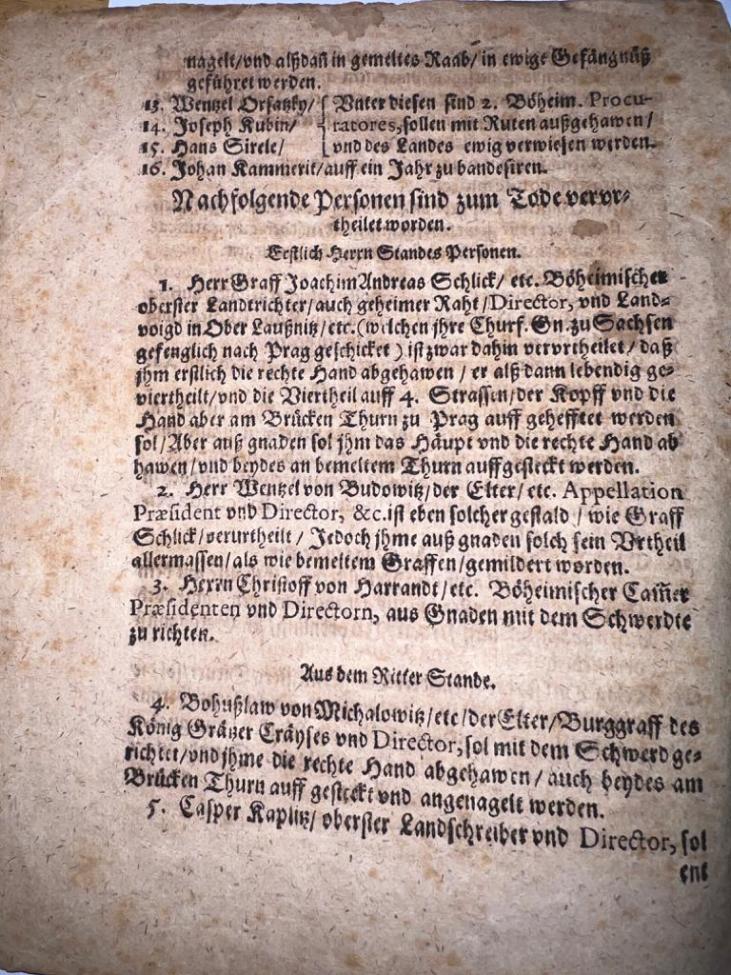 nagelt/vnd alßdañ in gemeltes Raab/ in ewige Gefängnüß
geführet werden.
13. Wentzel Orsatzky/ { Vnter diesen sind 2. Böheim. Procu-
14. Joseph Kubin/ ratores, sollen mit Ruten außgehawen/
15. Hans Sirele/ vnd des Landes ewig verwiesen werden.
16. Johan Kammerit/auff ein Jahr zu bandesiren.
Nachfolgende Personen sind zum Tode vervr-
theilet worden.
Erstlich Herrn Standes Personen.
1. Herr Graff Joachim Andreas Schlick/ etc. Böheimischer
oberster Landtrichter/auch geheimer Raht/Director, vnd Land-
voigd in Ober Laußnitz/etc.(welchen jhre Churf. Gn. zu Sachsen
gefenglich nach Prag geschicket) ist zwar dahin vervrtheilet/ daß
jhm erstlich die rechte Hand abgehawen/ er alß dann lebendig ge-
viertheilt/vnd die Viertheil auff 4. Strassen/der Kopff vnd die
Hand aber am Brücken Thurn zu Prag auff gehefftet werden
sol/Aber auß gnaden sol jhm das Häupt vnd die rechte Hand ab
hawen/vnd beydes an bemeltem Thurn auffgesteckt werden.
2. Herr Wentzel von Budowitz/der Elter/ etc. Appellation
Præsident vnd Director, &c. ist eben solcher gestald/ wie Graff
Schlick/verurtheilt/ Jedoch jhme auß gnaden solch sein Vrtheil
allermassen/als wie bemeltem Graffen/gemildert worden.
3. Herrn Christoff von Harrandt/etc. Böheimischer Cam̃er
Præsidenten vnd Directorn, aus Gnaden mit dem Schwerdte
zu richten.
Aus dem Ritter Stande.
4. Bohußlaw von Michalowitz/etc/der Elter/Burggraff des
König Grätzer Cräyses vnd Director, sol mit dem Schwerd ge-
richtet/vnd jhme die rechte Hand abgehawen/ auch beydes am
Brücken Thurn auff gesteckt vnd angenagelt werden.
5. Casper Kaplitz/ oberster Landschreiber vnd Director, sol
ent